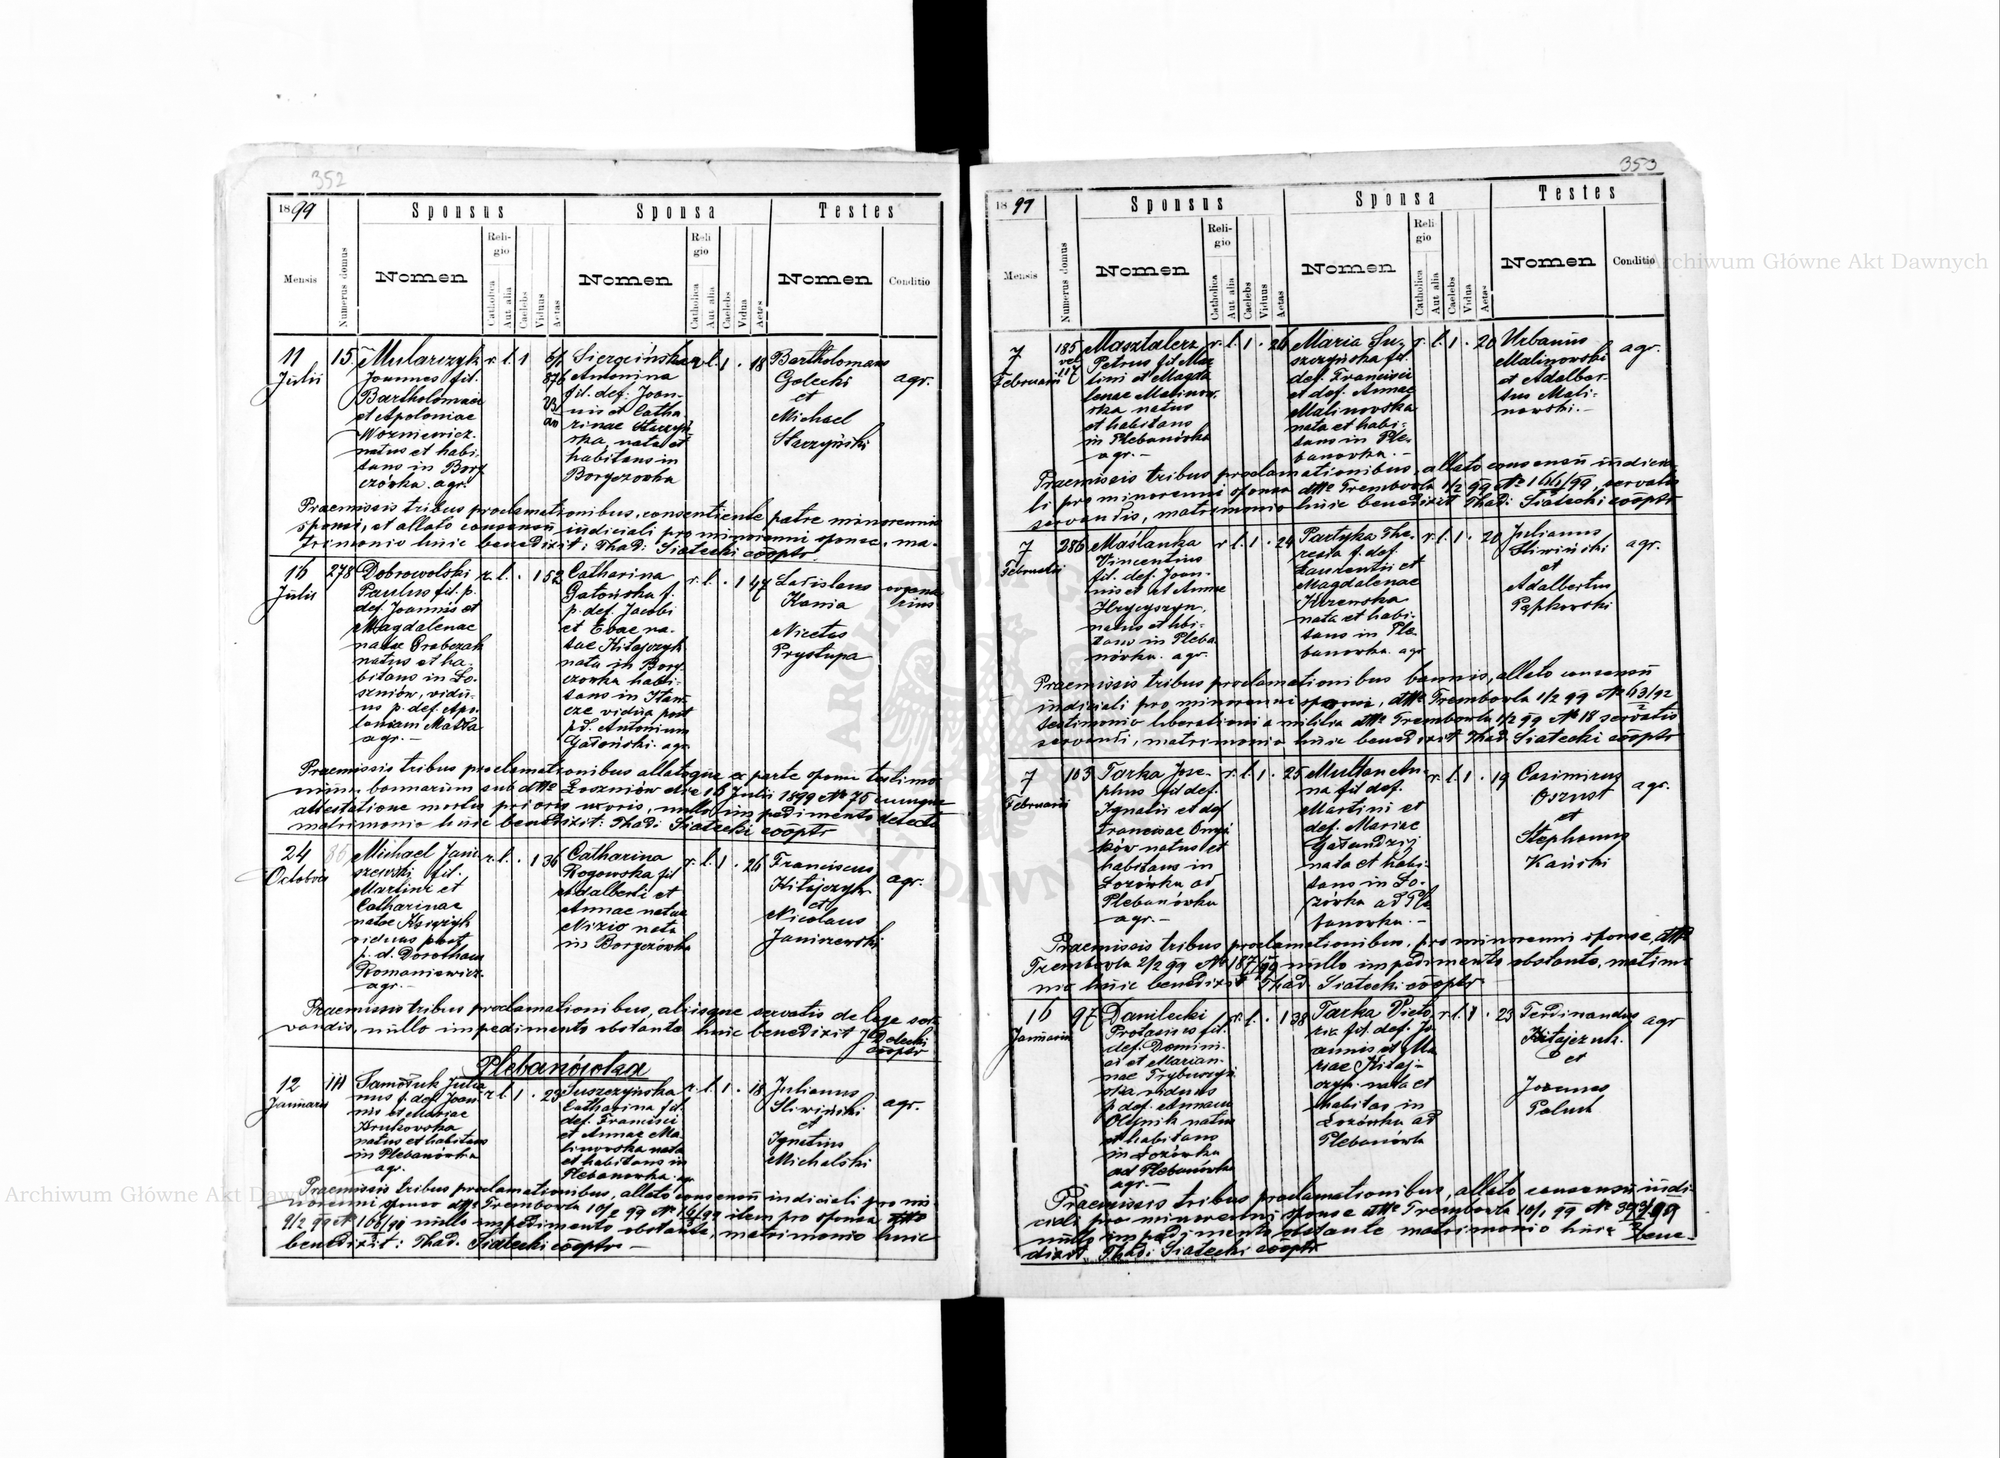 352
1899
Sponsus
Sponsa
Testes
Mensis
Numerus domus
Nomen
Religio
Catholica
Aut alia
Caelebs
Viduus
Aetas
Nomen
Religio
Catholica
Aut alia
Caelebs
Vidua
Aetas
Nomen
Conditio
11
Julii
15
Mularczyk
Joannes fil.
Bartholomaei
et Apoloniae
Wozniewicz
natus et habi-
tans in Borg
czówka agr.
r. l. 1
Antonina
fil. def. Joan-
nis et Catha-
rinae Starzyń
ska, nata et
habitans in
Borgczovka
r. l. 1 . 18
Bartholomaeus
Golecki
et
Michael
Starzyński
agr.
Praemissis tribus proclamationibus, consentiente patre minorennis
sponsi, et allato consensu judiciali pro minorenni sponsa, ma-
trimonio huic benedixit: Thad: Siatecki cooptr
16
Julii
278
Dobrowolski
Paulus fil. p.
def. Joannis et
Magdalenae
natae Grabczak
natus et ha-
bitans in Ło-
szniów, vidu-
us p. def. Apo-
loniam Maska
agr. —
r. l. . 1 52
Catharina
Gatońska f.
p. def. Jacobi
et Evae na-
tae Kitajczyk
nata in Borg
czovka habi-
tans in Iław
cze vidua post
p.d. Antonium
Gatoński. agr
r. l. . 1 47
Ladislaus
Kania
Nicetas
Prystupa
organa
rius
Praemissis tribus proclamationibus allatoque ex parte sponsi testimo
nium bannorum sub dtto Łoszniów die 16 Julii 1899 No 75 eumque
attestatione mortis prioris uxoris, nullo impedimento detecto
matrimonio huic benedixit: Thad: Siatecki cooptr
24
Octobris
86
Michael Jani
szewski fil.
Martini et
Catharinae
natae
viduus post
p. d. Dorotheam
Romaniewicz
agr. —
r. l. . 1 36
Catharina
Rogowska fil
Adalberti et
Annae natae
Nizio nata
in Borgczówka
r. l. 1 . 26
Franciscus
Kitajczyk
et
Nicolaus
Janiszewski
agr.
Praemissis tribus proclamationibus, aliisque servatis de lege ser
vandis, nullo impedimento obstante huic benedixit J Dolecki
cooptr
Plebanówka
12
Januarii
111
Samoluk Julia
nus f. def. Joan
nis et Mariae
Krukovska
natus et habitans
in Plebanówka
agr.
r. l. 1 . 23
Suszczyńska
Catharina fil.
def. Francisci
et Annae Ma
linovska nata
et habitans in
Plebanovka. agr
r. l. 1 . 18
Julianus
Sliwiński
et
Ignatius
Michalski
agr.
Praemissis tribus proclamationibus, allato consensu indiciali pro mi-
norenni sponso dtto Trembovla 10/2 99 No item pro sponsa
9/2 99 No nullo impedimento obstante, matrimonio huic
benedixit: Thad. Siatecki cooptr —
353
1899
Sponsus
Sponsa
Testes
Mensis
Numerus domus
Nomen
Religio
Catholica
Aut alia
Caelebs
Viduus
Aetas
Nomen
Religio
Catholica
Aut alia
Caelebs
Vidua
Aetas
Nomen
Conditio
7
Februarii
185
vel
117
Masztalerz
Petrus fil Mar
tini et Magda
lenae Malinov-
ska natus
et habitans
in Plebanówka
agr. —
r. l. 1 . 26
Maria Su-
szczyńska fil.
def. Francisci
et def. Annae
Malinovska
nata et habi-
tans in Ple-
banovka. —
r. l. 1 . 20
Urbanus
Malinovski
et Adalber-
tus Mali-
novski. —
agr.
Praemissis tribus proclamationibus, allato consensu indicia-
li pro minorenni sponsa dtto Trembovla 1/2 99 No servatis
servandis, matrimonio huic benedixit Thad: Siatecki cooptr
7
Februarii
286
Maślanka
Vincentius
fil. def. Joan-
nis et Annae
Hrycyszyn,
natus et hbi-
tans in Pleba
nówka. agr.
r. l. 1 . 24
Partyka The-
resia f. def.
Laurentii et
Magdalenae
nata et habi-
tans in Ple
banovka. agr
r. l. 1 . 20
Julianus
Sliwiński
et
Adalbertus
Pępkovski
agr.
Praemissis tribus proclamationibus bannis, allato consensu
indiciali pro minorenni sponsa, dtto Trembovla 1/2 99 No
testimonio liberationi a militia dtto Trembovla 1/2 99 No 18 servatis
servandi, matrimonio huic benedixit Thad. Siatecki cooptr
7
Februarii
103
Tarka Jose-
phus fil def.
Ignatii et def
Franciscae
natus et
habitans in
Lozówka ad
Plebanówka
agr. —
r. l. 1 . 25
Multan An-
na fil def.
Martini et
def. Mariae
nata et habi-
tans in Lo-
zówka ad Ple
banovka. —
r. l. 1 . 19
Casimirus
Oszust
et
Stephanus
Kański
agr.
Praemissis tribus proclamationibus, pro minorenni sponsa, dtto
Trembovla 2/2 99 No nullo impedimento obstante, matimo
nio huic benedixit Thad. Siatecki cooptr
16
Januarii
97
Danilecki
Protasius fil.
def. Domini-
ci et Marian-
nae
viduus
p def. Annam
Olejnik natus
et habitans
in Lozówka
ad Plebanówka
agr. —
r. l. . 1 38
Tarka Victo
ria fil. def. Jo
annis et Ma
riae Kitaj-
czyk nata et
habitas in
Łozówka ad
Plebanówka
r. l. 1 . 23
Ferdinandus
Kitajczuk
et
Joannes
Paluch
agr
Praemissis tribus proclamationibus, allato consensu iudi-
ciali pro minorenni sponsa dtto Trembovla 10/1 99 No
nullo impedimento obstante matrimonio huic bene-
dixit Thad: Siatecki cooptr
Archiwum Główne Akt Dawnych
Archiwum Główne Akt Dawnych